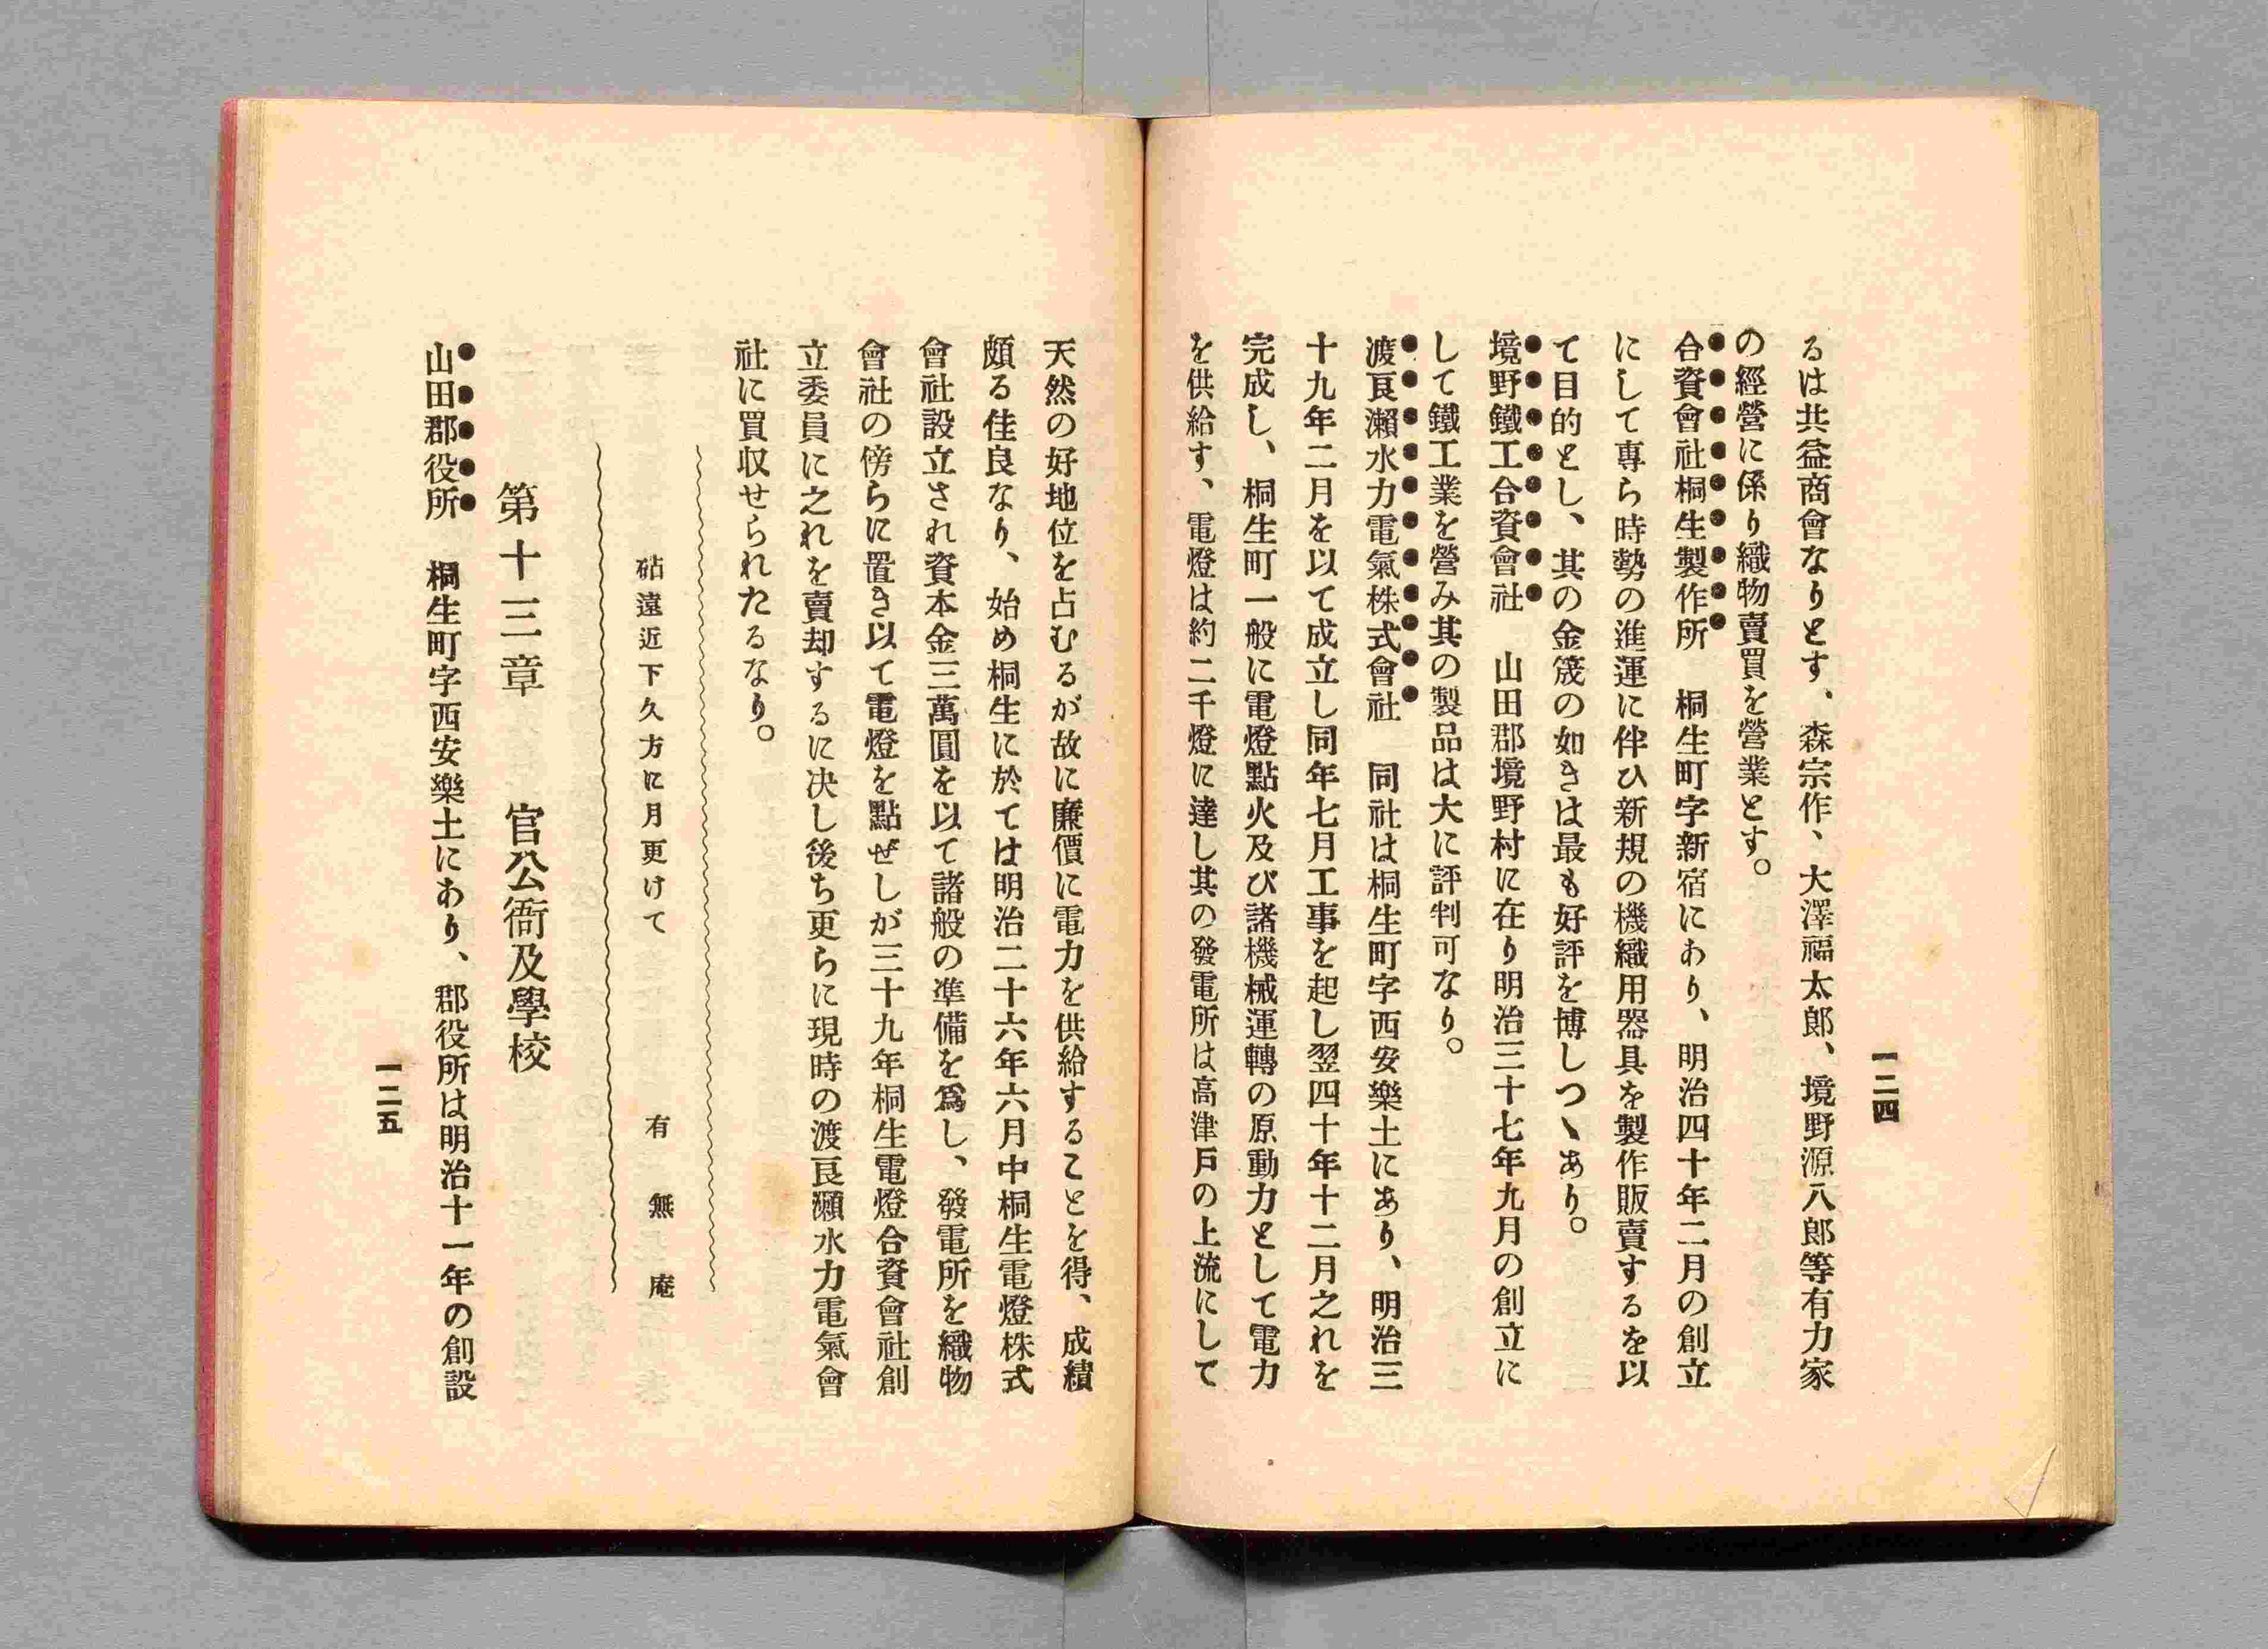 一二四
るは共益商會なりとす、森宗作、大澤福太郎、境野源八郎等有力家
の經營に係り織物賣買を營業とす。
合資會社桐生製作所　桐生町字新宿にあり、明治四十年二月の創立
にして專ら時勢の進運に伴ひ新規の機織用器具を製作販賣するを以
て目的とし、其の金筬の如きは最も好評を博しつゝあり。
境野鐵工合資會社　山田郡境野村に在り明治三十七年九月の創立に
して鐵工業を營み其の製品は大に評判可なり。
渡良瀬水力電氣株式會社　同社は桐生町字西安樂土にあり、明治三
十九年二月を以て成立し同年七月工事を起し翌四十年十二月之れを
完成し、桐生町一般に電燈點火及び諸機械運轉の原動力として電力
を供給す、電燈は約二千燈に達し其の發電所は高津戸の上流にして
天然の好地位を占むるが故に廉價に電力を供給することを得、成績
頗る佳良なり、始め桐生に於ては明治二十六年六月中桐生電燈株式
會社設立され資本金三萬圓を以て諸般の準備を爲し、發電所を織物
會社の傍らに置き以て電燈を點ぜしが三十九年桐生電燈合資會社創
立委員に之れを賣却するに决し後ち更らに現時の渡良瀬水力電氣會
社に買収せられたるなり。
砧遠近下久方に月更けて　有無庵
第十三章　官公衙及學校
山田郡役所　桐生町字西安樂土にあり、郡役所は明治十一年の創設
一二五